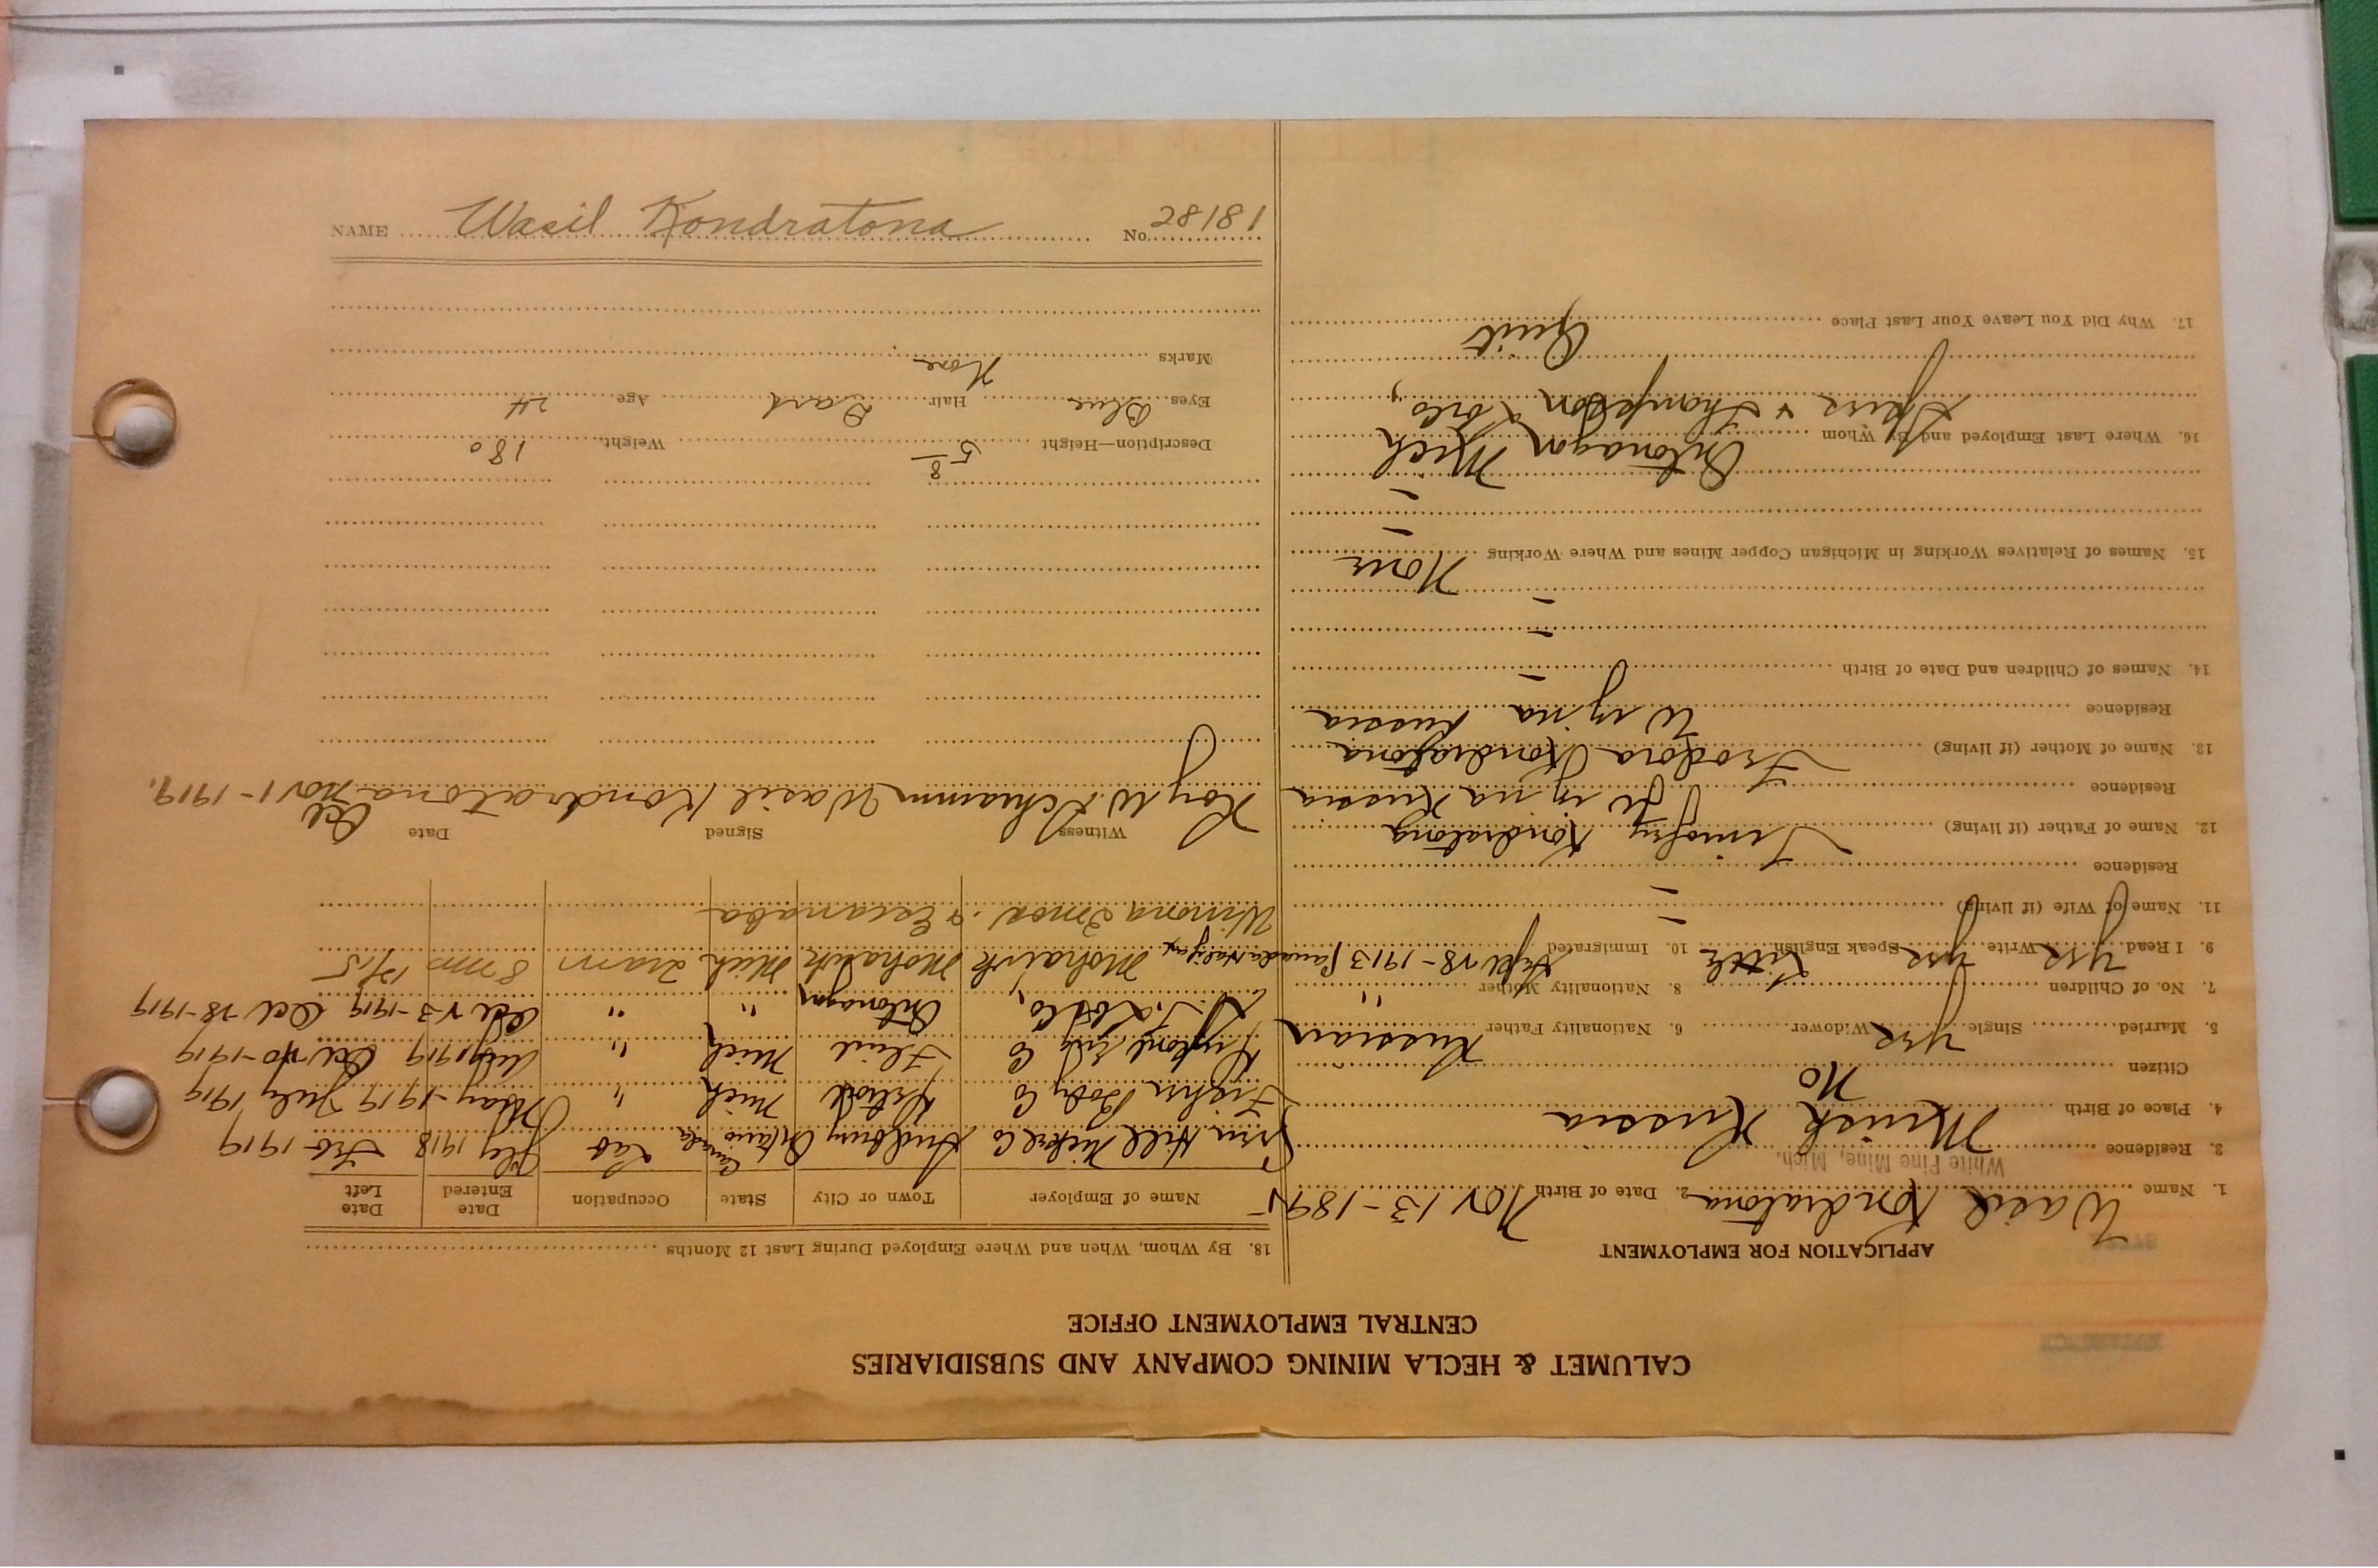 CALUMET & HECLA MINING COMPANY AND SUBSIDIARIES
CENTRAL EMPLOYMENT OFFICE
APPLICATION FOR EMPLOYMENT
1. Name Wasil Kondratona 2. Date of Birth Nov 13-1895
White Pine Mine, Mich.
3. Residence
4. Place of Birth Minsk Russia
Citizen No
5. Married Single Yes Widower 6. Nationality Father Russian
7. No. of Children 8. Nationality Mother "
9. I Read Yes Write Yes Speak English Little 10. Immigrated 28-1913 Canada Halifax
11. Name of Wife (if living) -
Residence -
12. Name of Father (if living) Timofey Kondratona
Residence Russia
13. Name of Mother (if living) Kondratona
Residence Russia
14. Names of Children and Date of Birth -
-
-
15. Names of Relatives Working in Michigan Copper Mines and Where Working None
-
-
16. Where Last Employed and By Whom Ontonagon Mich
& Thompson
17. Why Did You Leave Your Last Place Quit
18. By Whom, When and Where Employed During Last 12 Months
Name of Employer Town or City State Occupation Date Entered Date Left
Hill Nickel Co Sudbury Ontario Canada Lab 1918 1919
Fisher Body Co Detroit Mich " May-1919 July 1919
Co Flint Mich " Aug 1919 Oct 20-1919
Ontonagon " " Oct 23-1919 Oct 28-1919
Mohawk Mohawk Mich Tram 8 mos 1915
Winona 2 mos. & Escanaba
Witness Signed Date
Roy W. Wasil Kondratona Nov 1-1919.
Description—Height 5 8 Weight 180
Eyes Blue Hair Dark Age 24
Marks None
NAME Wasil Kondratona No. 28181